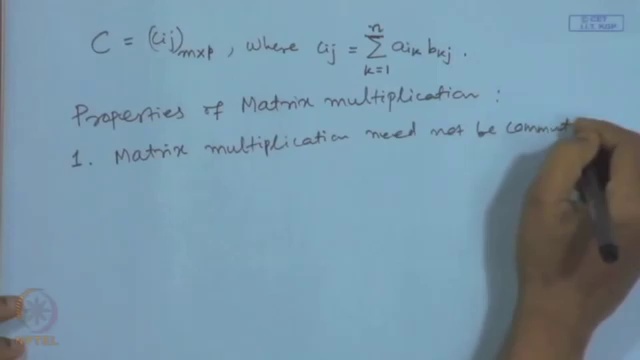 C = (cij)m×p, where cij = n∑k=1 aik bkj.
Properties of Matrix multiplication :
1. Matrix multiplication need not be commut
© CET
I.I.T. KGP
NPTEL